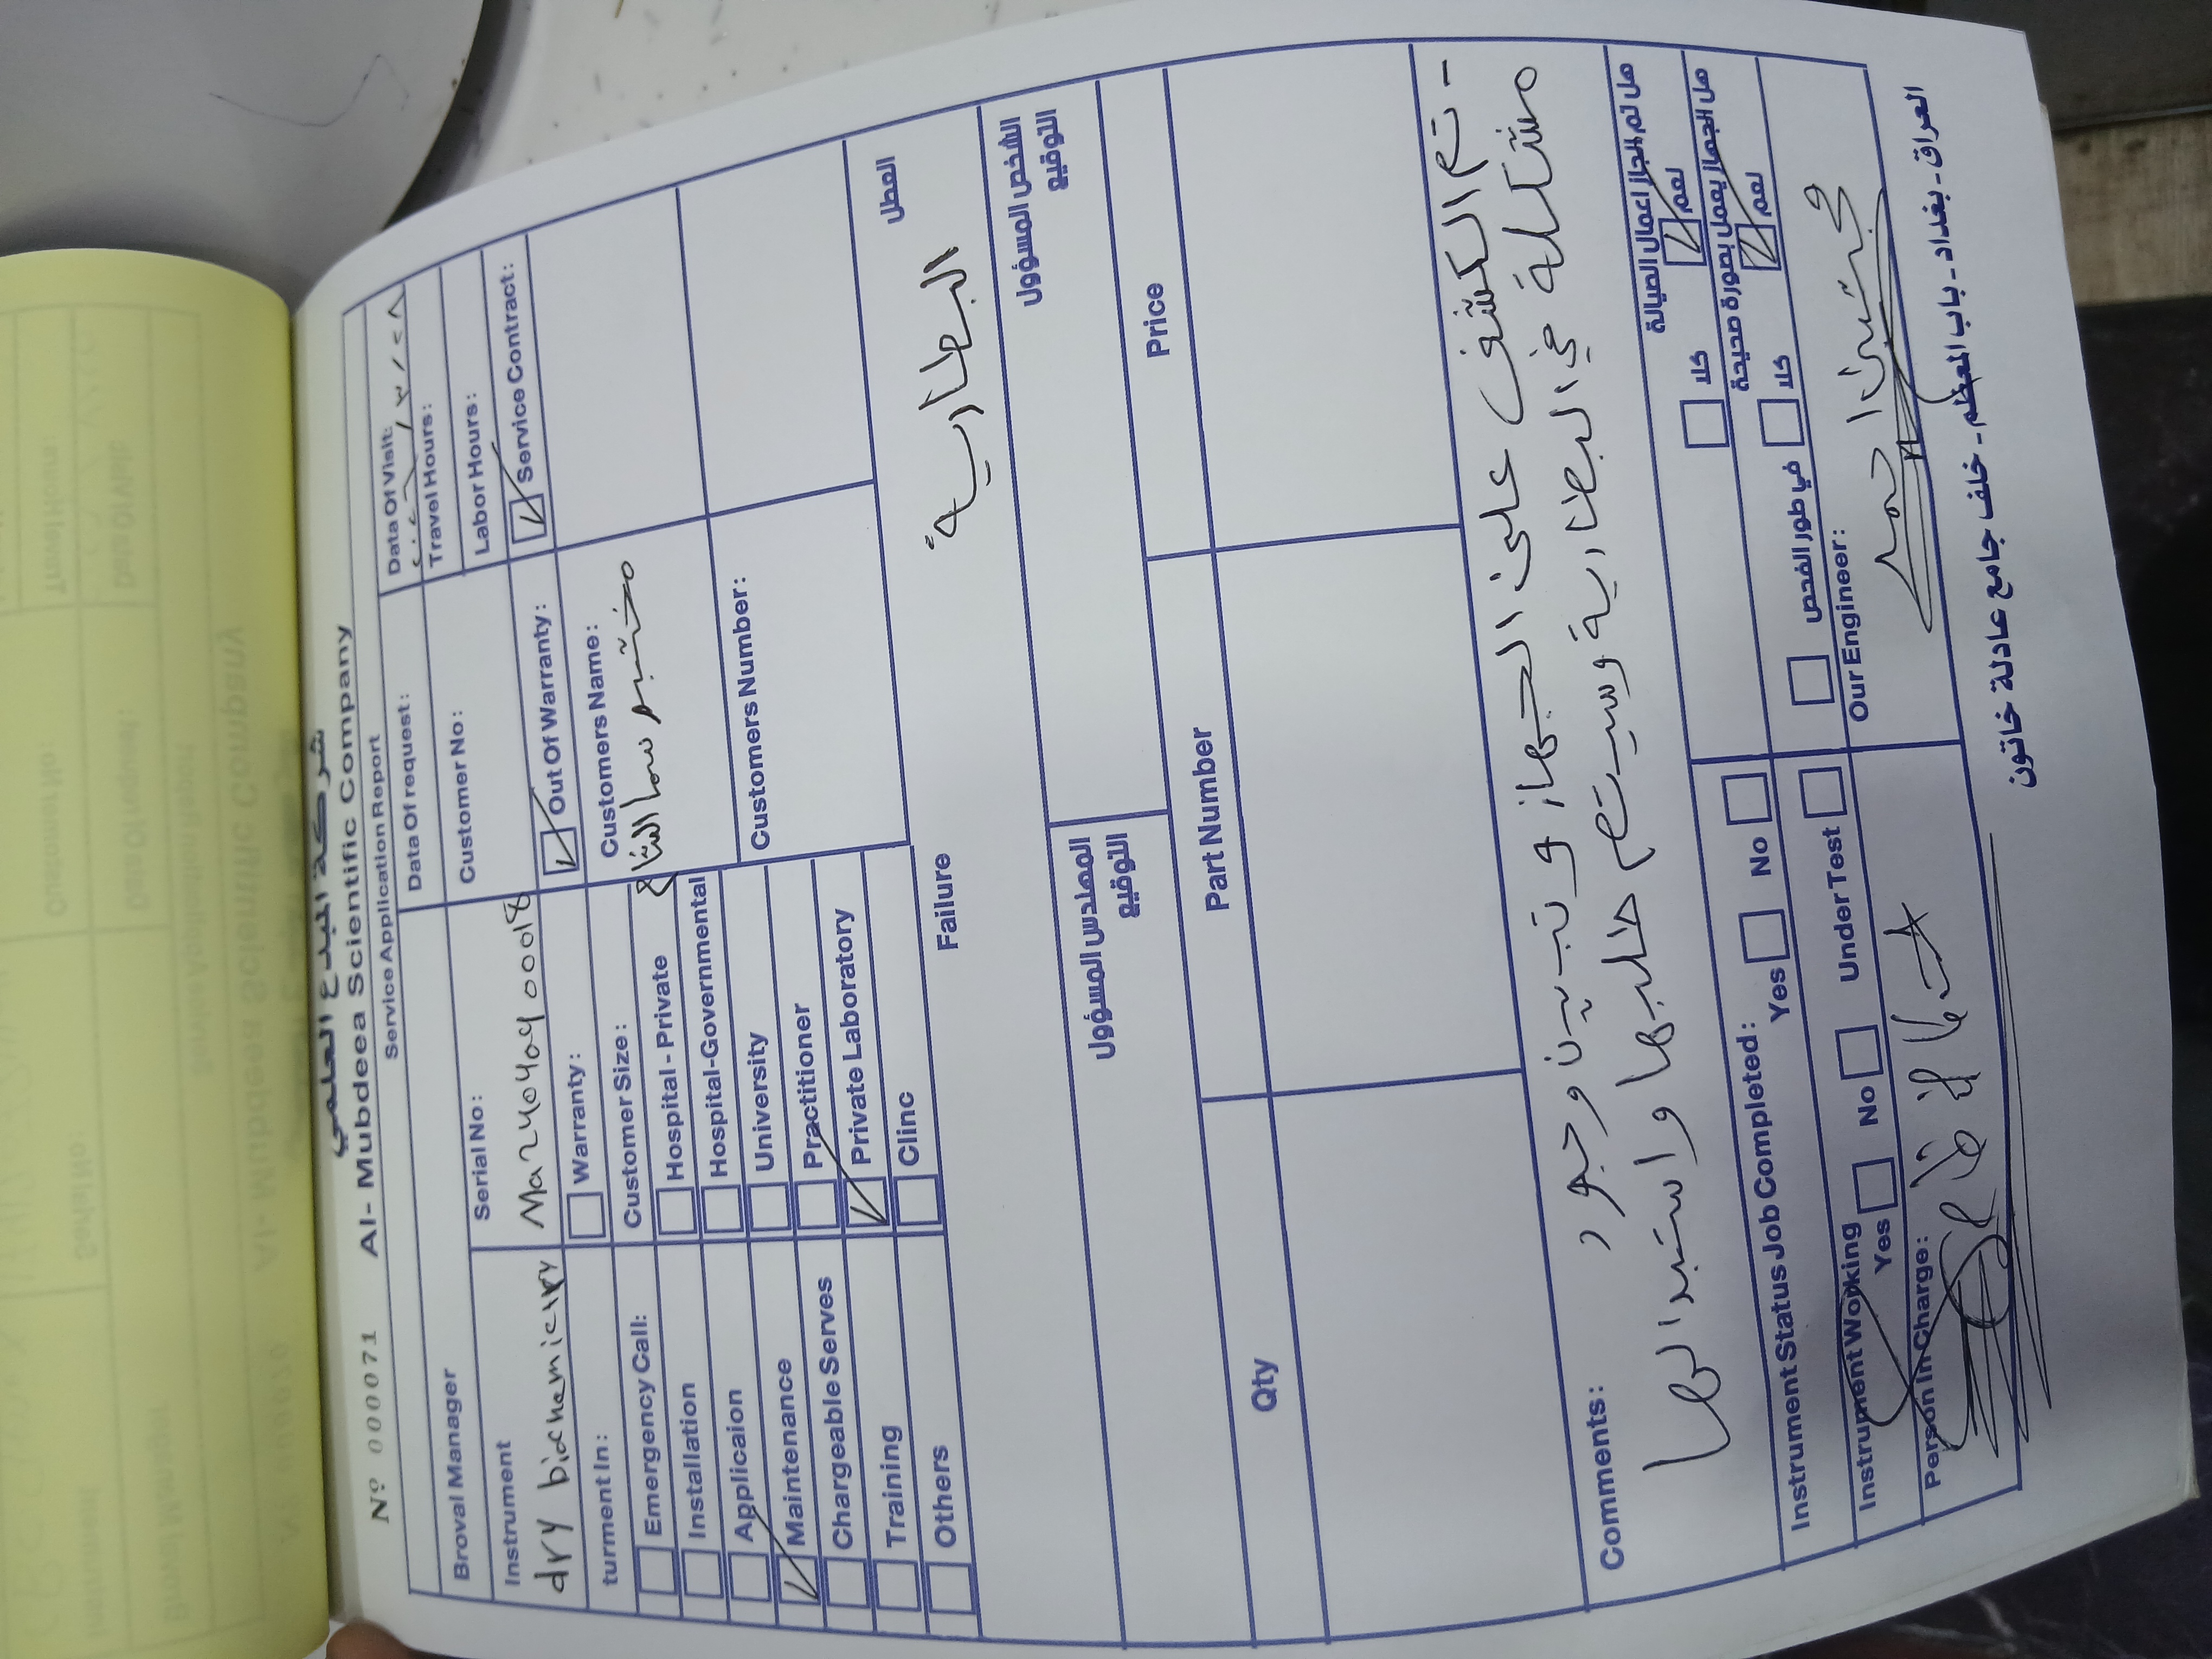 شركة المبدع العلمي
Nº 000071 Al- Mubdeea Scientific Company
Service Application Report
Broval Manager
Data Of request:
Data Of Visit:
٢٠٢٦/٣/٢٨
Travel Hours:
Instrument
Serial No:
Customer No:
Labor Hours:
dry biochemictry
Ma240409 00018
turment In:
Warranty:
Out Of Warranty:
Service Contract:
Emergency Call:
Customer Size:
Customers Name:
Installation
Hospital - Private
مختبر سما الشفاء
Applicaion
Hospital-Governmental
Maintenance
University
Customers Number:
Chargeable Serves
Practitioner
Training
Private Laboratory
Others
Clinc
Failure
العطل
البطارية
المهندس المسؤول
التوقيع
الشخص المسؤول
التوقيع
Qty
Part Number
Price
Comments:
- تم الكشف على الجهاز وتبين وجود
مشكلة في البطارية وسيتم طلبها واستبدالها
Instrument Status Job Completed:
هل تم انجاز اعمال الصيانة
Yes
No
كلا
نعم
Instrument Working
هل الجهاز يعمل بصورة صحيحة
Yes
No
Under Test
في طور الفحص
كلا
نعم
Person In Charge:
Our Engineer:
مجتبى احمد
العراق - بغداد - باب المعظم - خلف جامع عادلة خاتون